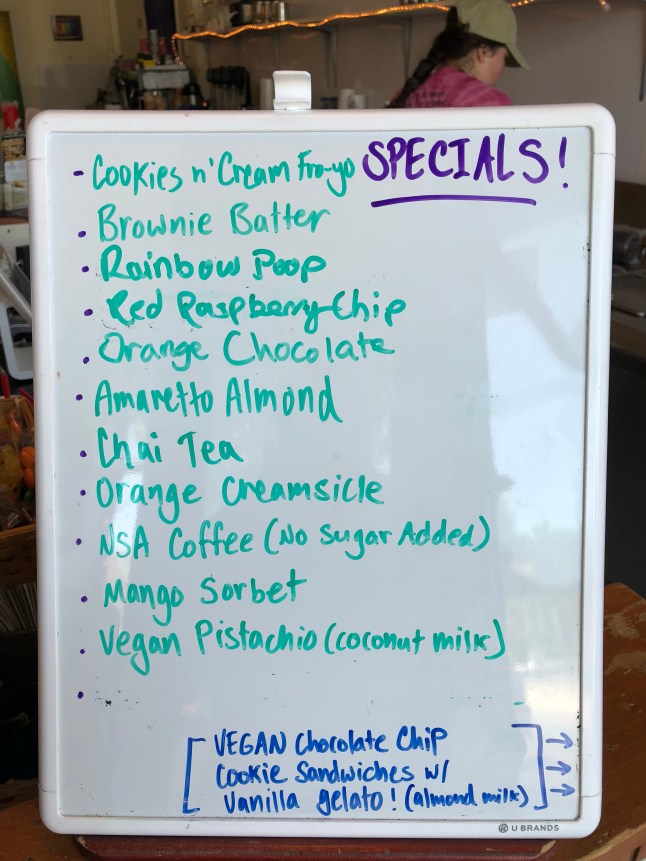 SPECIALS!
- Cookies n' Cream Fro-yo
• Brownie Batter
• Rainbow Poop
• Red Raspberry Chip
• Orange Chocolate
• Amaretto Almond
• Chai Tea
• Orange Creamsicle
• NSA Coffee (No Sugar Added)
• Mango Sorbet
• Vegan Pistachio (coconut milk)
•
[VEGAN Chocolate Chip →
Cookie Sandwiches w/ →
Vanilla gelato! (almond milk)] →
U BRANDS